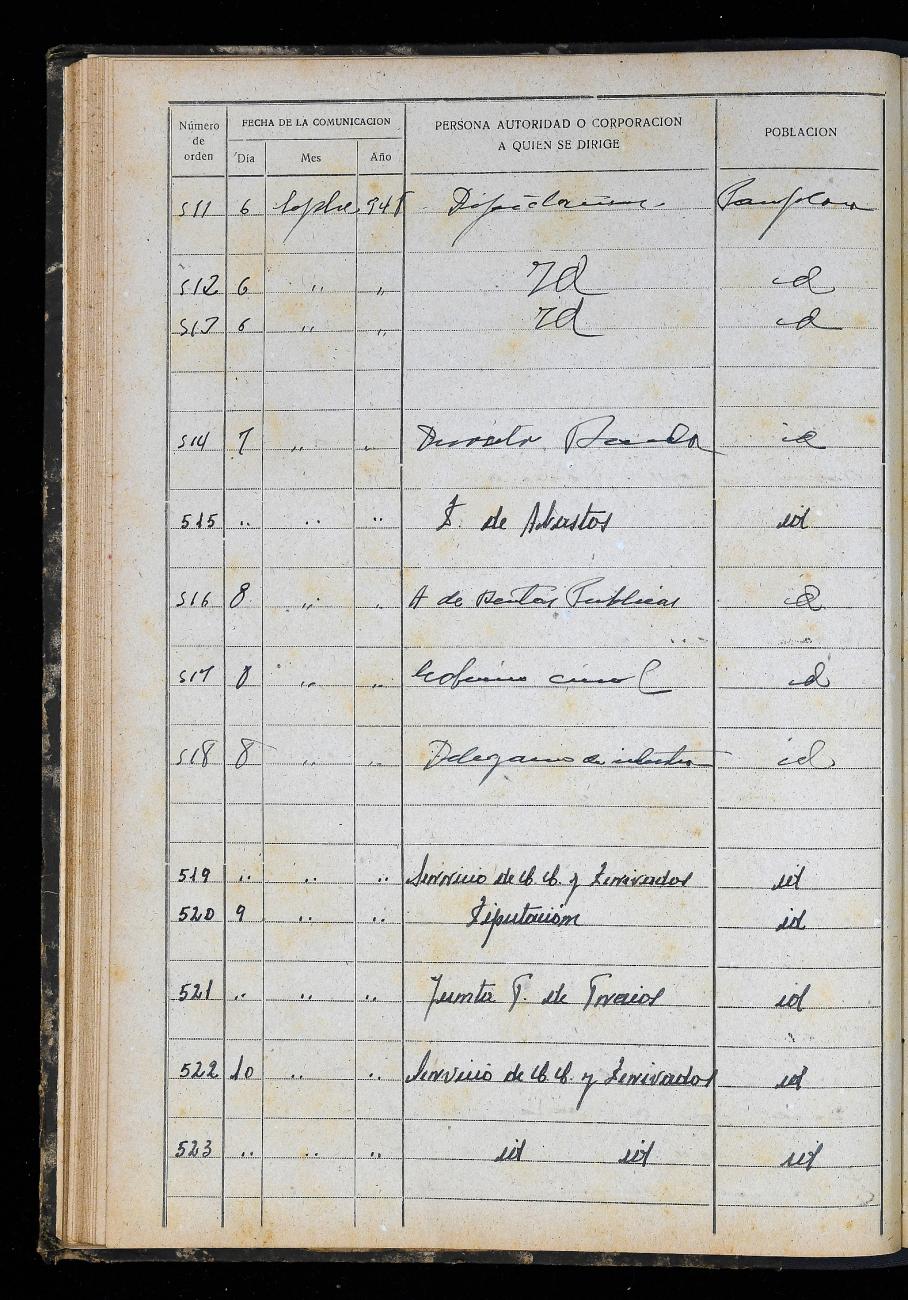 Número de orden FECHA DE LA COMUNICACION PERSONA AUTORIDAD O CORPORACION A QUIEN SE DIRIGE POBLACION
Día Mes Año
511 6 Sepbre 941
512 6 " " Id id
513 6 " " Id id
514 7 " " id
515 " " " D. de Abastos id
516 8 " " A de Rentas Publicas id
517 8 " " Gobierno civil id
518 8 " " id
519 " " " Servicio de C.C. y Derivados id
520 9 " " Diputación id
521 " " " Junta P. de Precios id
522 10 " " Servicio de C.C. y Derivados id
523 " " " id id id